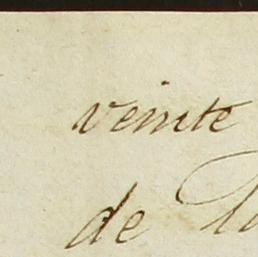 veinte
de